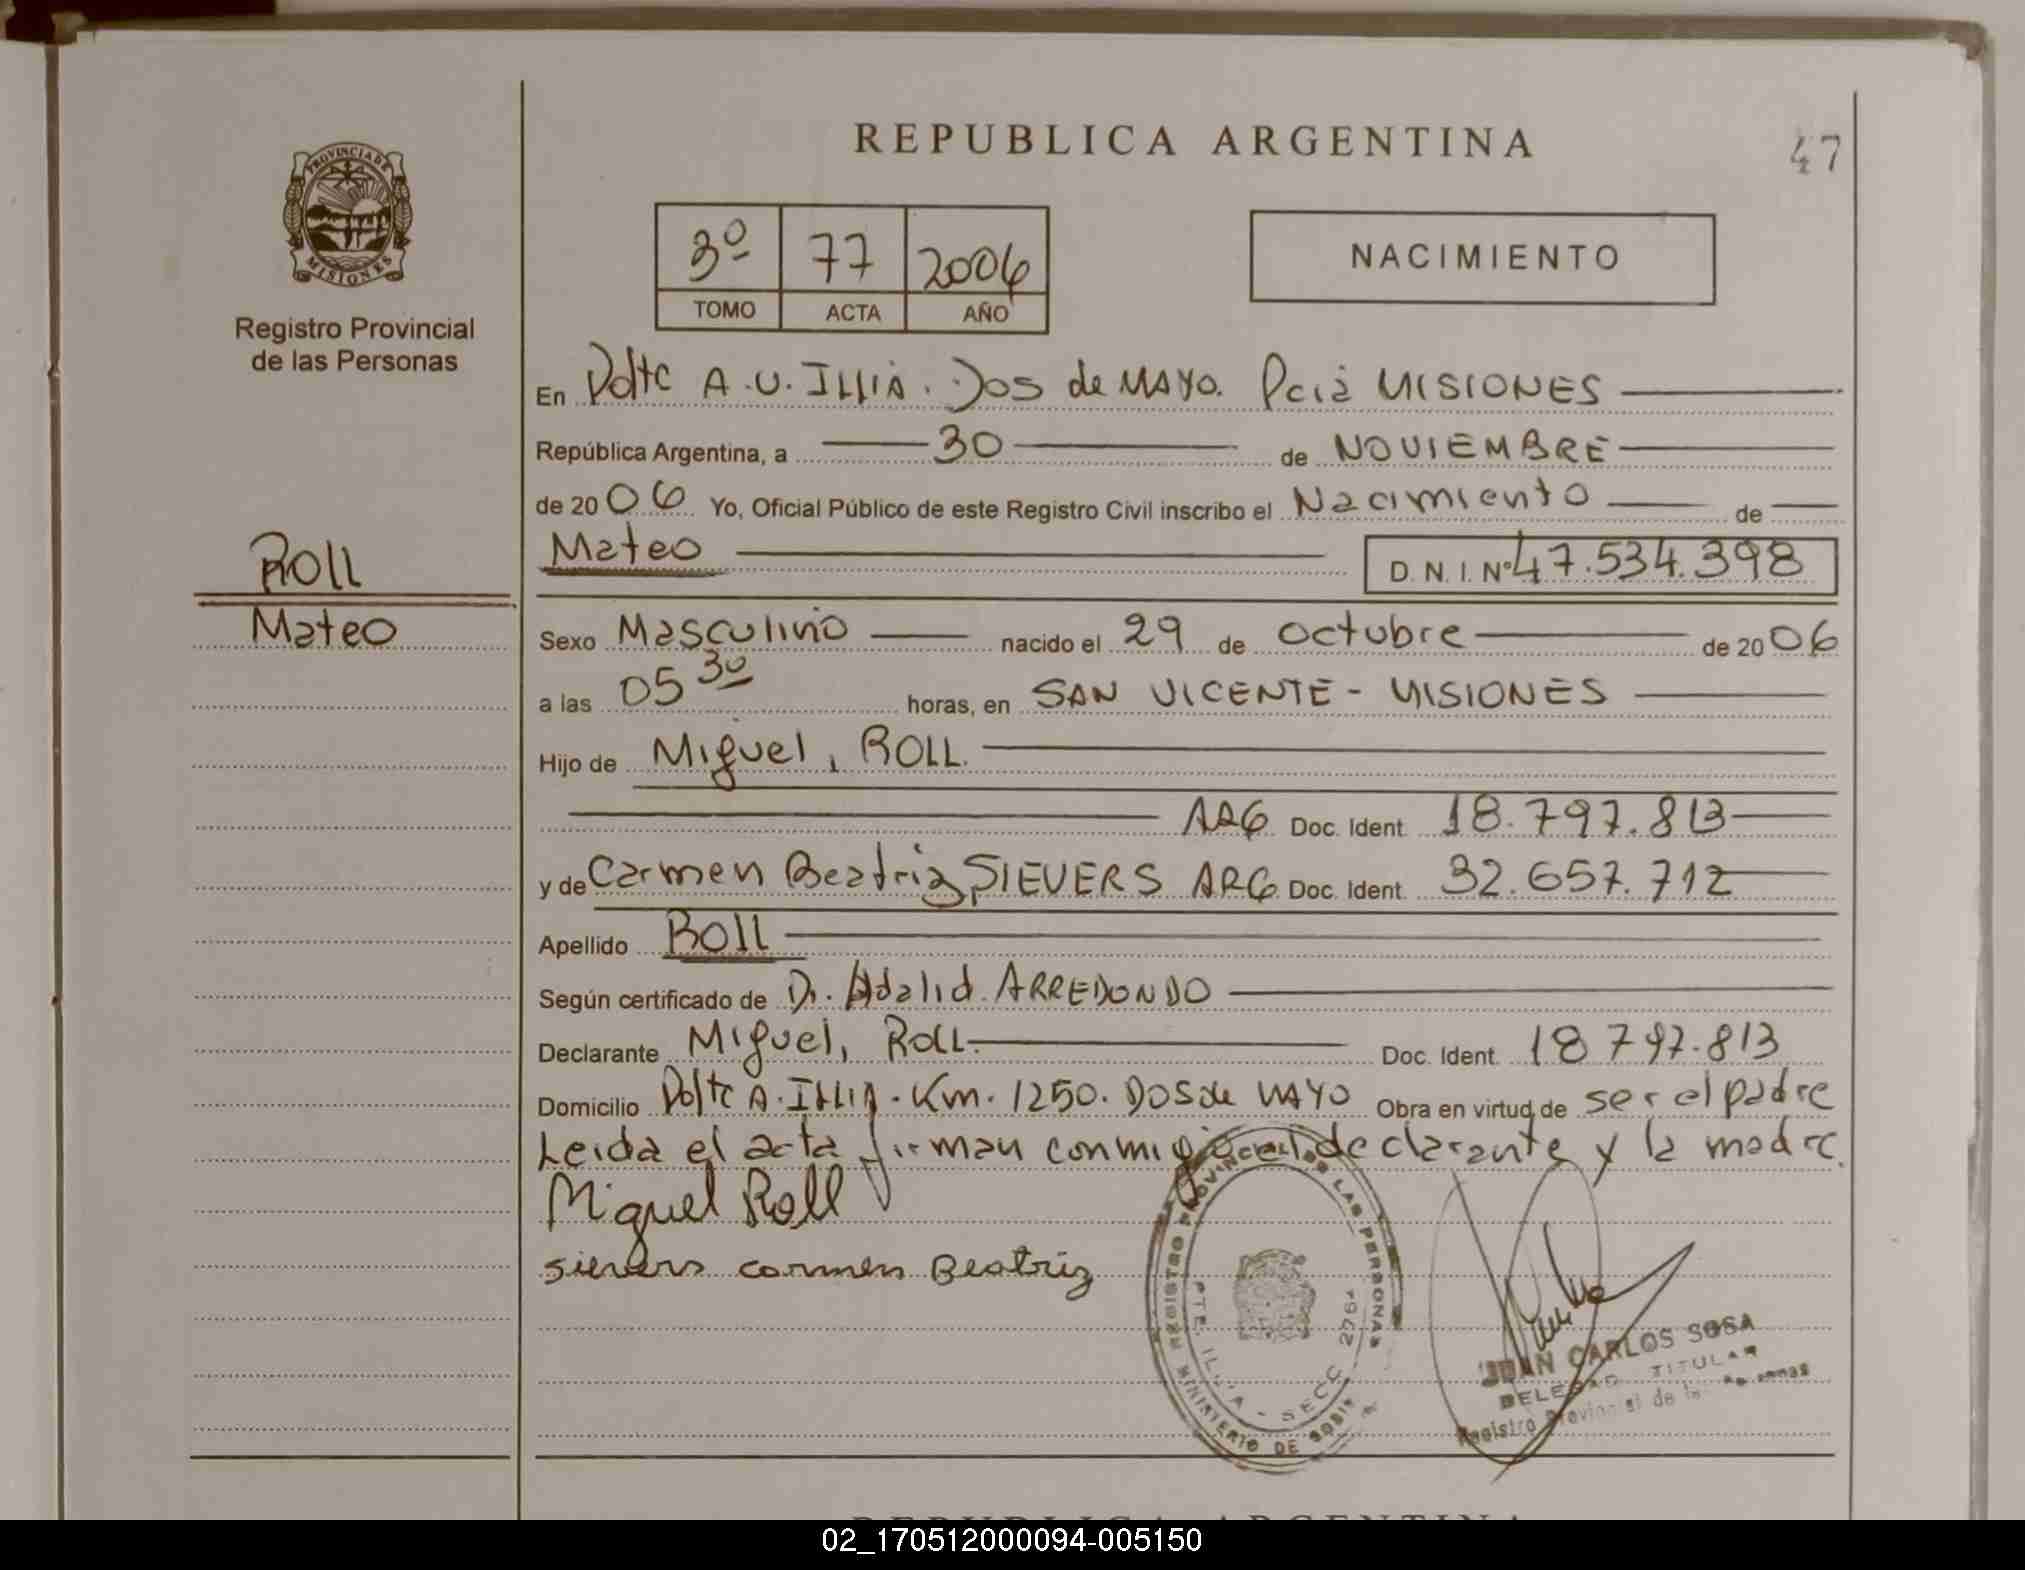 REPUBLICA ARGENTINA
47
PROVINCIA DE
MISIONES
Registro Provincial
de las Personas
3º 77 2006
TOMO ACTA AÑO
NACIMIENTO
En Pdte A.U. ILLIA. Dos de MAYO. Pcia MISIONES
República Argentina, a 30 de NOVIEMBRE
de 20 06 Yo, Oficial Público de este Registro Civil inscribo el Nacimiento de
Mateo D. N. I. Nº 47.534.398
ROLL
Mateo
Sexo Masculino nacido el 29 de octubre de 20 06
a las 05 30 horas, en SAN VICENTE - MISIONES
Hijo de Miguel, ROLL.
ARG Doc. Ident. 18.797.813
y de Carmen Beatriz, SIEVERS ARG. Doc. Ident. 32.657.712
Apellido ROLL
Según certificado de Dr. Adalid. ARREDONDO
Declarante Miguel, ROLL. Doc. Ident. 18 797.813
Domicilio Pdte A. ILLIA. Km. 1250. DOS de MAYO Obra en virtud de ser el padre
Leida el acta firman conmigo el declarante y la madre.
Miguel Roll
sievers carmen Beatriz
REGISTRO PROVINCIAL DE LAS PERSONAS
PTE. ILLIA - SECC. 2761
MINISTERIO DE GOB
JUAN CARLOS SOSA
DELEGADO TITULAR
Registro Provincial de las Personas
REPUBLICA ARGENTINA
02_170512000094-005150